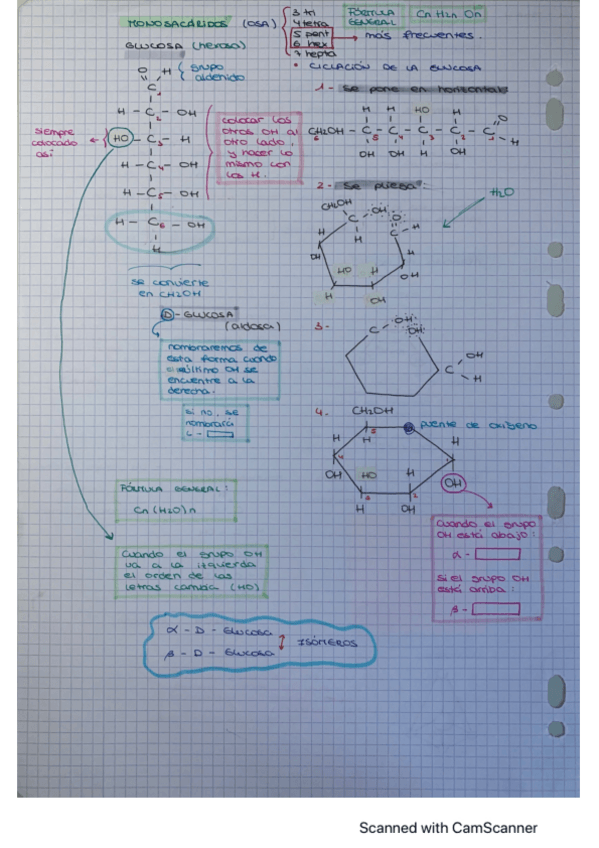 MONOSACÁRIDOS (OSA)
3 tri
4 tetra
5 pent
6 hex
7 hepta
más frecuentes.
FÓRMULA GENERAL
Cn H2n On
GLUCOSA (hexosa)
grupo
aldehído
O H
C1
H - C2 - OH
HO - C3 - H
H - C4 - OH
H - C5 - OH
H - C6 - OH
H
siempre
colocado
así
colocar los
otros OH al
otro lado,
y hacer lo
mismo con
los H.
se convierte
en CH2OH
D - GLUCOSA
(aldosa)
nombraremos de
esta forma cuando
el último OH se
encuentre a la
derecha.
si no, se
nombraría
L -
FÓRMULA GENERAL:
Cn (H2O)n
Cuando el grupo OH
va a la izquierda
el orden de las
letras cambia (HO)
• CICLACIÓN DE LA GLUCOSA
1 - Se pone en horizontal
H H HO H
CH2OH - C - C - C - C - C O
H
OH OH H OH
2 - Se pliega:
H2O
CH2OH
C - OH O
H H C - H
OH HO H H
OH
H OH
3 -
C - OH
OH
C OH
H
4.
CH2OH
puente de oxígeno
H H H
OH HO H OH
H OH
Cuando el grupo
OH está abajo:
α -
Si el grupo OH
está arriba:
β -
α - D - Glucosa
β - D - Glucosa
ISÓMEROS
Scanned with CamScanner